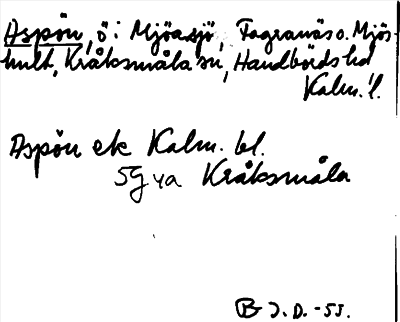 Aspön, ö i Mjöasjö, Fagranäs o. Mjös-
hult, Kråksmåla sn, Handbörds hd
Kalm. l.
Aspön ek Kalm. bl.
5G 4a Kråksmåla
B J.D. -55.